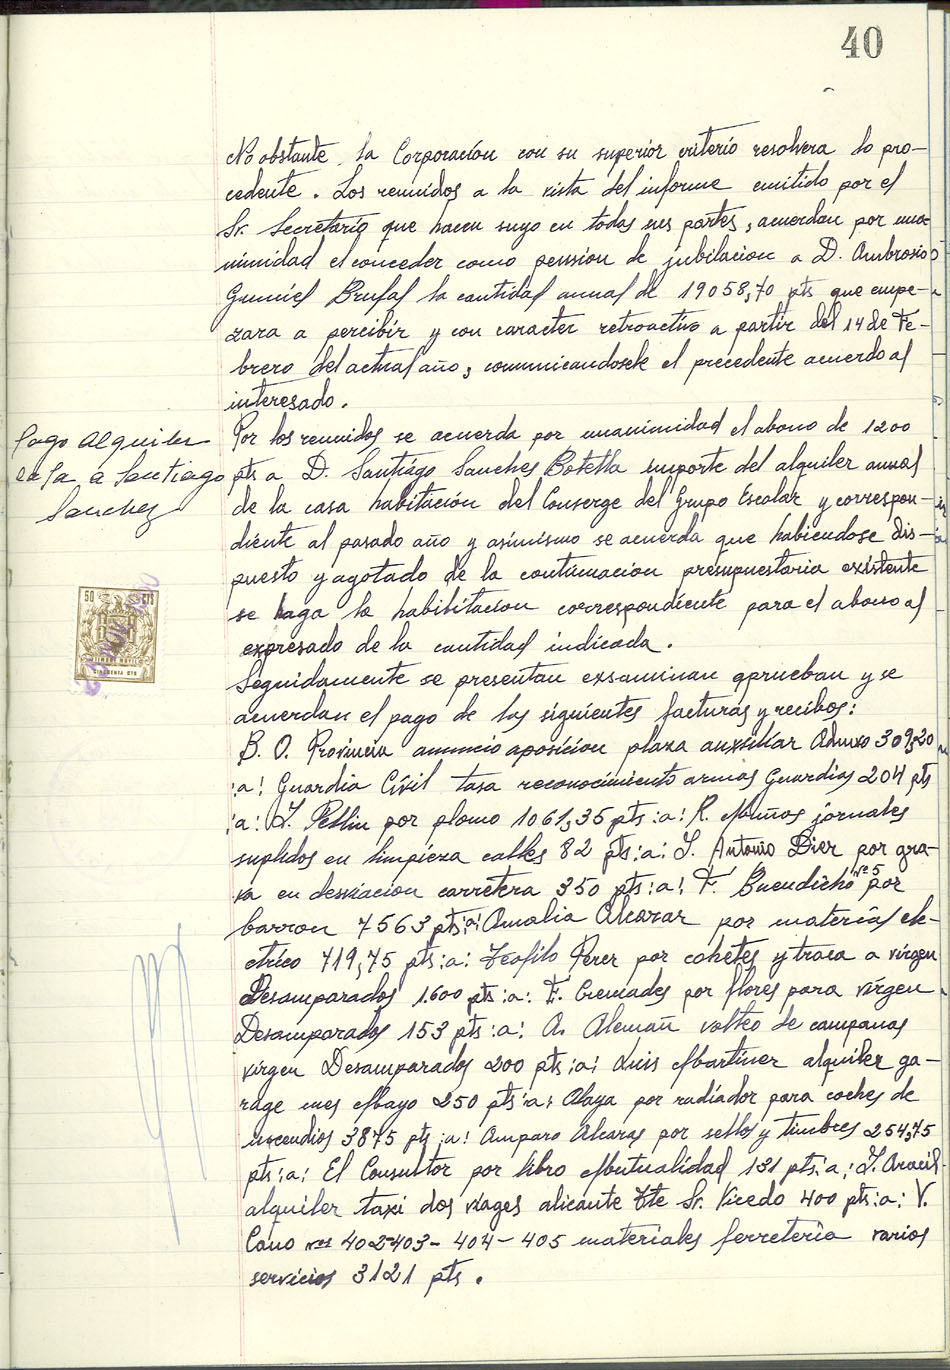 40
No obstante, la Corporación con su superior criterio resolvera lo pro-
cedente. Los reunidos a la vista del informe emitido por el
Sr. Secretario que hacen suyo en todas sus partes, acuerdan por una-
nimidad el conceder como pension de jubilacion a D. Ambrosio
Gumiel Brufal la cantidad anual de 19058,70 pts que empe-
zara a percibir y con caracter retroactivo a partir del 14 de Fe-
brero del actual año, comunicandosele el precedente acuerdo al
interesado.
Pago alquiler
casa a Santiago
Sanchez
Por los reunidos se acuerda por unanimidad el abono de 1200
pts a D. Santiágo Sanches Botella importe del alquiler anual
de la casa habitación del Conserge del Grupo Escolar y correspon-
diente al pasado año y asimismo se acuerda que habiendose dis-
puesto y agotado de la contimacion presupuestaria existente
se haga la habilitacion correspondiente para el abono al
expresado de la cantidad indicada.
50 CTS
TIMBRE MOVIL
CINCUENTA CTS
Seguidamente se presentan exsaminan aprueban y se
acuerdan el pago de las siguientes facturas y recibos:
B. O. Provincia anuncio aposicion plaza auxiliar Admvo 309,20
:a: Guardia Civil tasa reconocimiento armas Guardias 204 pts
:a: J. Pellin por plomo 1061,35 pts :a: R. Muños jornales
suplidos en limpieza calles 82 pts :a: J. Antonio Dier por gra-
va en desviacion carretera 350 pts :a: F. Buendicho nº 5 por
barron 7563 pts :a: Amalia Alcarar por material ele-
ctrico 719,75 pts :a: Teofilo Perer por cohetes y traca a virgen
Desamparados 1.600 pts :a: F. Cremades por flores para virgen
Desamparados 153 pts :a: A. Alemañ volteo de campanas
virgen Desamparados 200 pts :a: Luis Martiner alquiler ga-
rage mes Mayo 250 pts :a: Alaya por radiador para coches de
incendios 3875 pts :a: Amparo Alcaras por sellos y timbres 254,75
pts :a: El Consultor por libro Mutualidad 131 pts :a: J. Aracil
alquiler taxi dos viages alicante Tte Sr. Vicedo 400 pts :a: V.
Cano nos 402-403- 404- 405 materiales ferreteria varios
servicios 3121 pts.